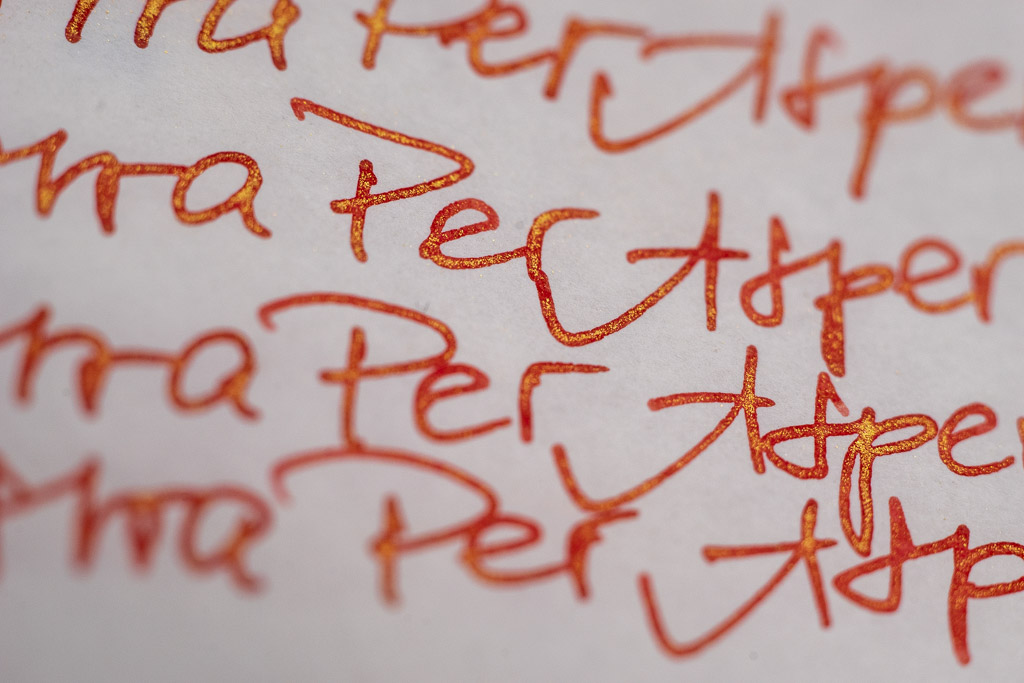 rra Per Aspe
rra Per Asper
rra Per Aspe
rra Per Asp